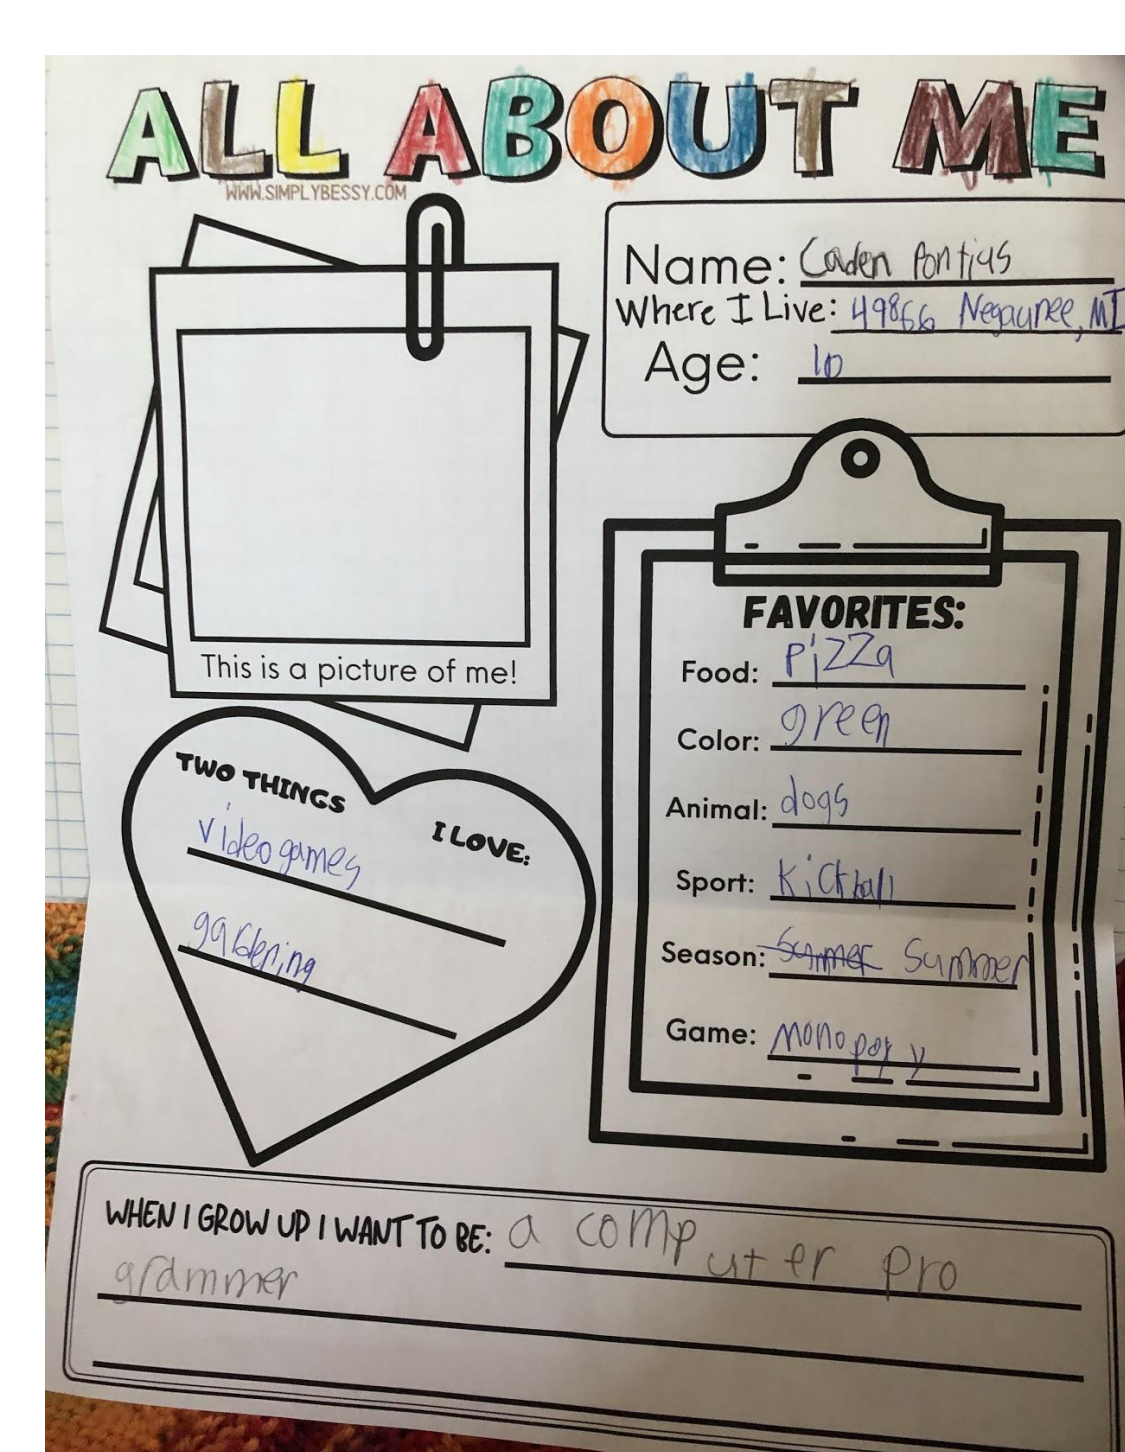 ALL ABOUT ME
WWW.SIMPLYBESSY.COM
Name: Caden Pontius
Where I Live: 49866 Negaunee, MI
Age: 10
This is a picture of me!
FAVORITES:
Food: Pizza
Color: green
Animal: dogs
Sport: Kickball
Season: Summer Summer
Game: Monopoly
TWO THINGS
I LOVE:
video games
gardening
WHEN I GROW UP I WANT TO BE: a computer pro
grammer